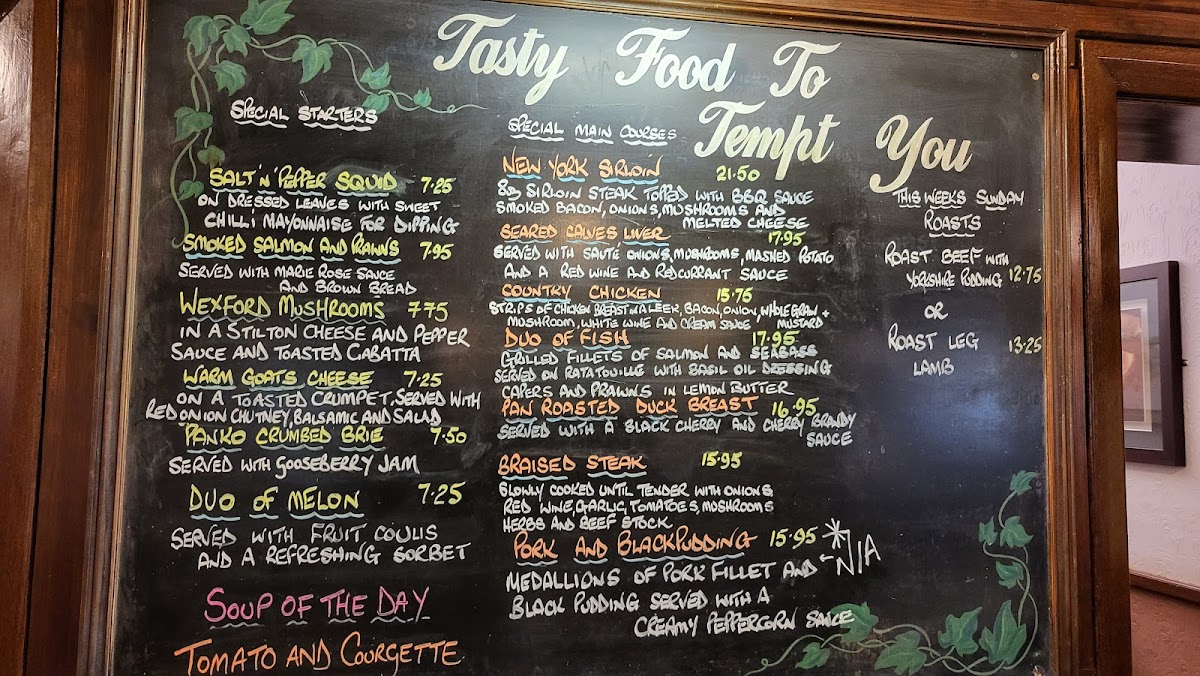 Tasty Food To
Tempt You
SPECIAL STARTERS
SALT 'N' PEPPER SQUID 7.25
ON DRESSED LEAVES WITH SWEET
CHILLI MAYONNAISE FOR DIPPING
SMOKED SALMON AND PRAWNS 7.95
SERVED WITH MARIE ROSE SAUCE
AND BROWN BREAD
WEXFORD MUSHROOMS 7.75
IN A STILTON CHEESE AND PEPPER
SAUCE AND TOASTED CABATTA
WARM GOATS CHEESE 7.25
ON A TOASTED CRUMPET, SERVED WITH
RED ONION CHUTNEY, BALSAMIC AND SALAD
PANKO CRUMBED BRIE 7.50
SERVED WITH GOOSEBERRY JAM
DUO OF MELON 7.25
SERVED WITH FRUIT COULIS
AND A REFRESHING SORBET
SOUP OF THE DAY
TOMATO AND COURGETTE
SPECIAL MAIN COURSES
NEW YORK SIRLOIN 21.50
8oz SIRLOIN STEAK TOPPED WITH BBQ SAUCE
SMOKED BACON, ONIONS, MUSHROOMS AND
MELTED CHEESE
SEARED CALVES LIVER 17.95
SERVED WITH SAUTÉ ONIONS, MUSHROOMS, MASHED POTATO
AND A RED WINE AND REDCURRANT SAUCE
COUNTRY CHICKEN 15.75
STRIPS OF CHICKEN BREAST IN A LEEK, BACON, ONION, WHOLEGRAIN +
MUSHROOM, WHITE WINE AND CREAM SAUCE MUSTARD
DUO OF FISH 17.95
GRILLED FILLETS OF SALMON AND SEABASS
SERVED ON RATATOUILLE WITH BASIL OIL DRESSING
CAPERS AND PRAWNS IN LEMON BUTTER
PAN ROASTED DUCK BREAST 16.95
SERVED WITH A BLACK CHERRY AND CHERRY BRANDY
SAUCE
BRAISED STEAK 15.95
SLOWLY COOKED UNTIL TENDER WITH ONIONS
RED WINE, GARLIC, TOMATOES, MUSHROOMS
HERBS AND BEEF STOCK
PORK AND BLACKPUDDING 15.95 *
MEDALLIONS OF PORK FILLET AND N/A
BLACK PUDDING SERVED WITH A
CREAMY PEPPERCORN SAUCE
THIS WEEK'S SUNDAY
ROASTS
ROAST BEEF WITH
YORKSHIRE PUDDING 12.75
OR
ROAST LEG 13.25
LAMB